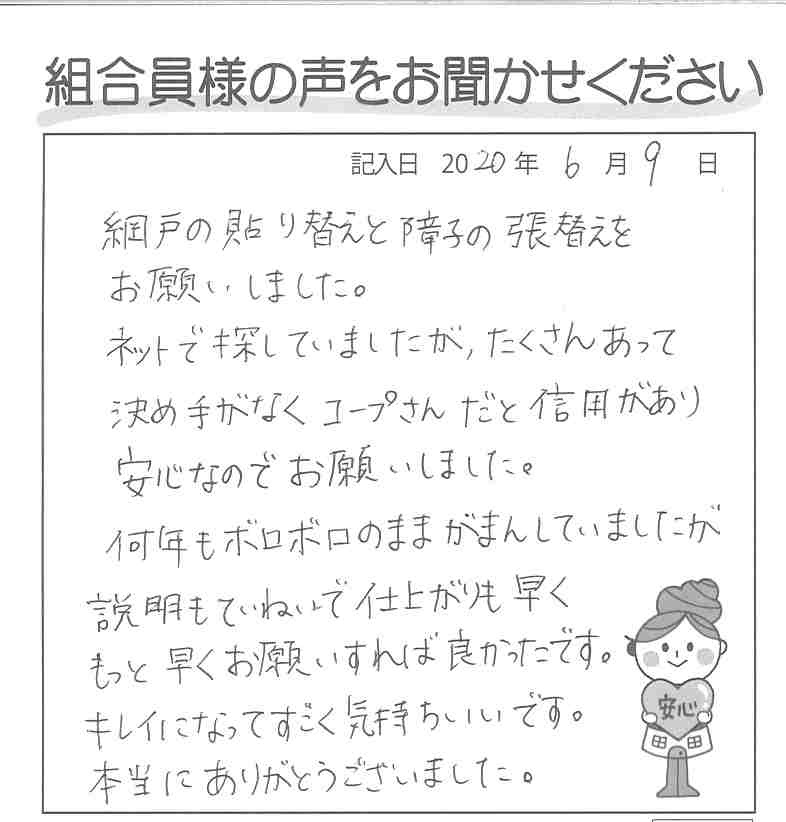 組合員様の声をお聞かせください
記入日 2020年 6月9日
網戸の貼り替えと障子の張替えを
お願いしました。
ネットで探していましたが、たくさんあって
決め手がなくコープさんだと信用があり
安心なのでお願いしました。
何年もボロボロのままがまんしていましたが
説明もていねいで仕上がりも早く
もっと早くお願いすれば良かったです。
キレイになってすごく気持ちいいです。
本当にありがとうございました。
安心